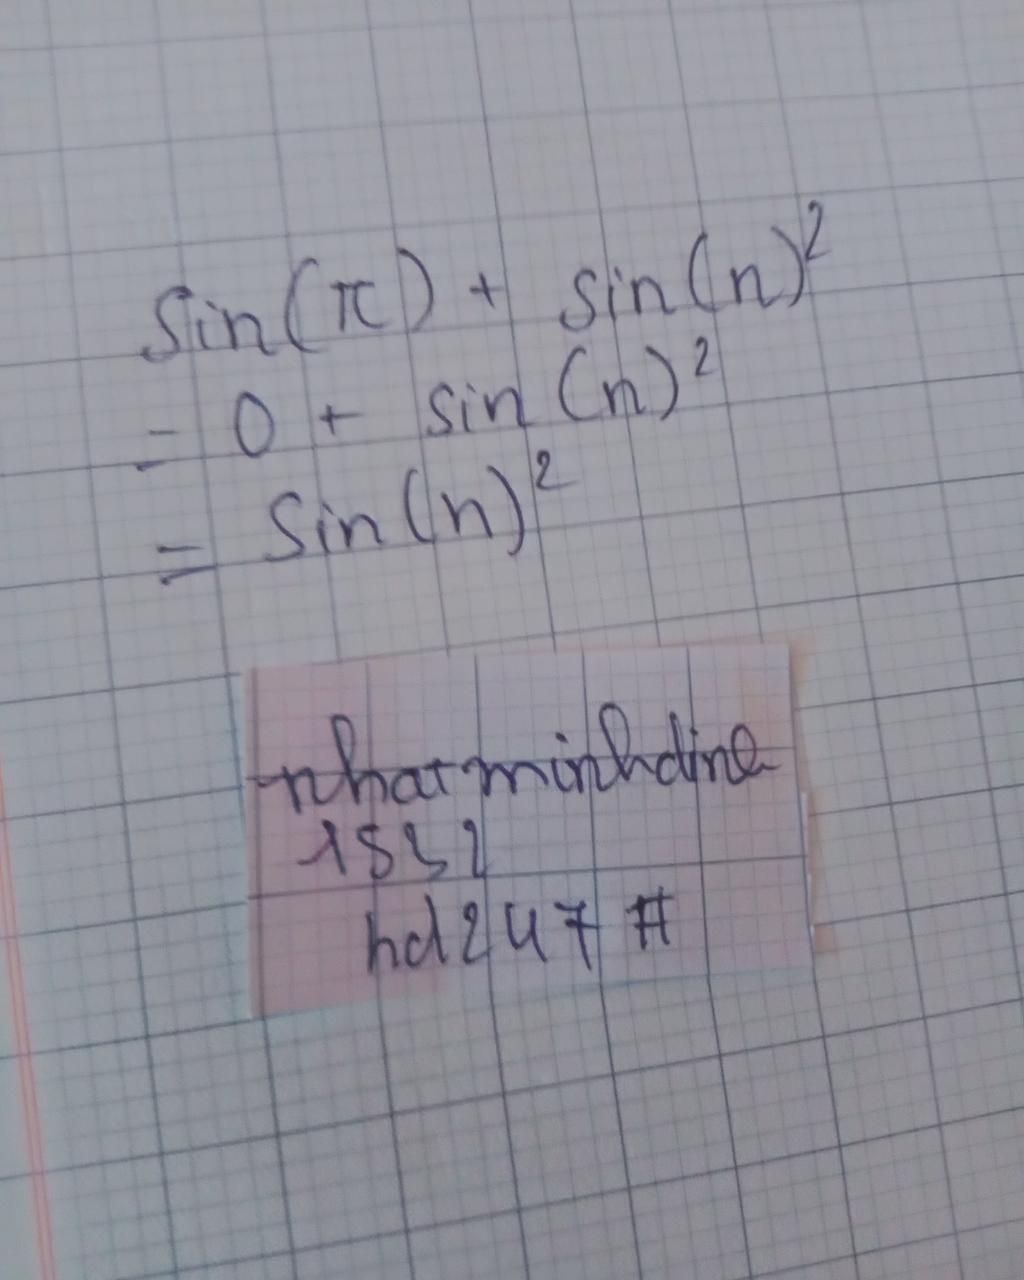 Sin(π) + sin(n)²
= 0 + sin(n)²
= Sin(n)²
nhatminhdine
1532
hd247#